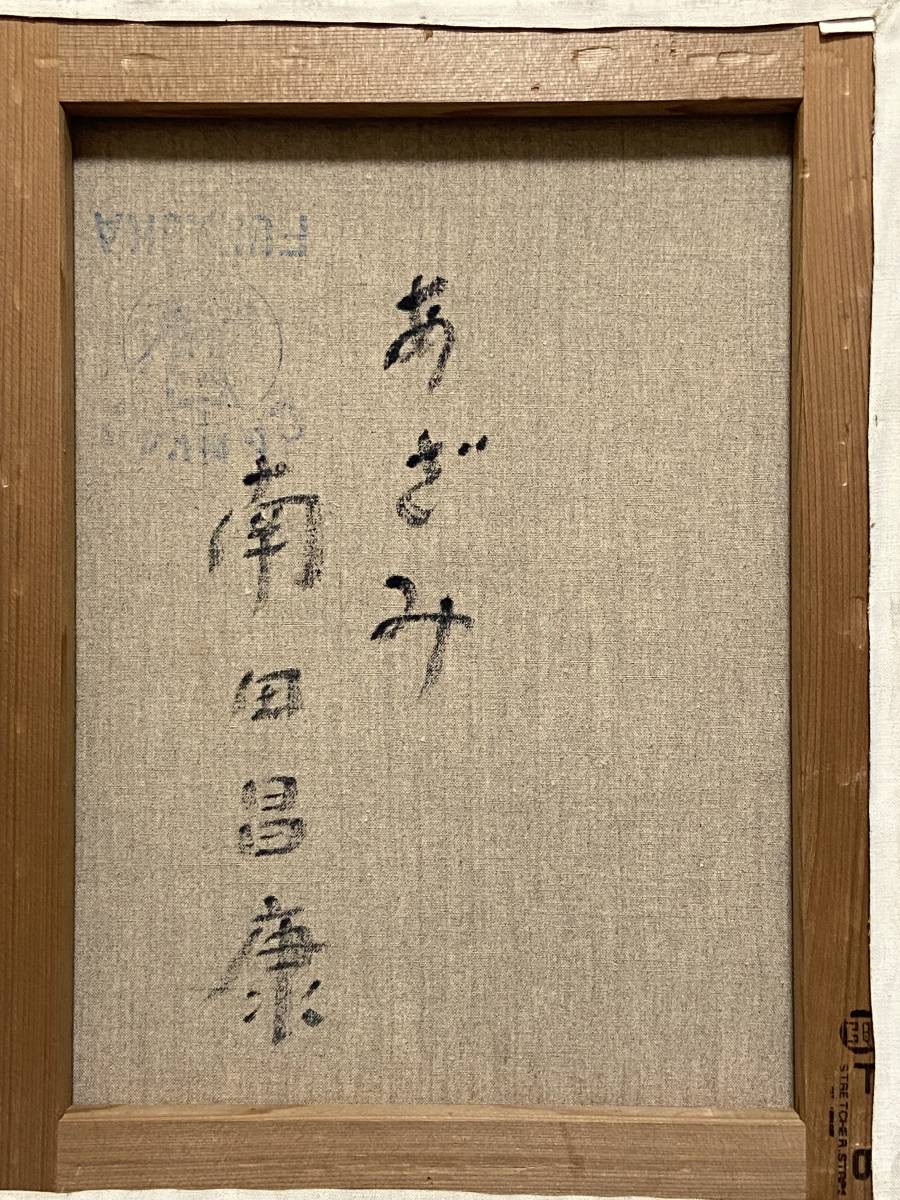 あざみ
南田昌康
STRETCHER STRIP